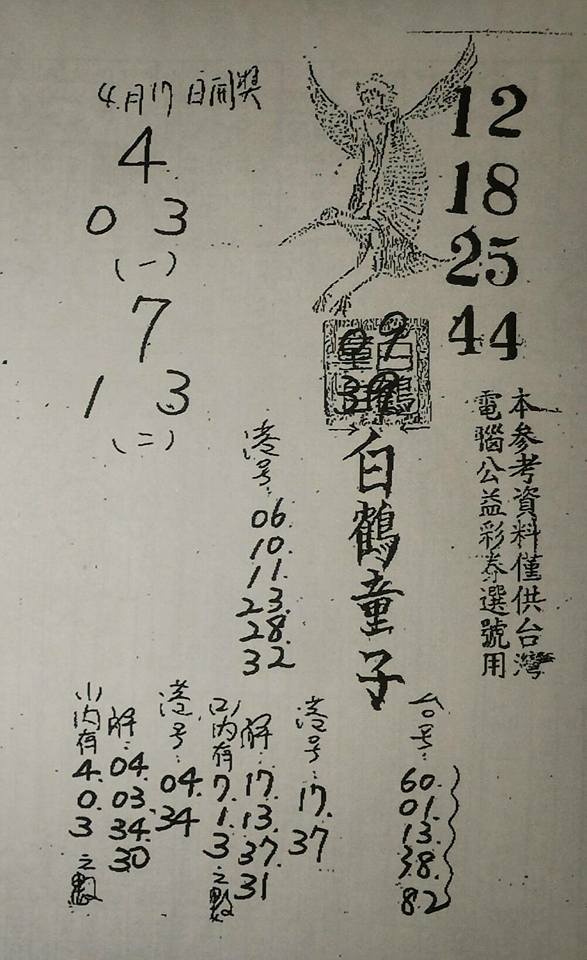 4月17日開獎
4
0 3
(一)
7
1 3
(二)
12
18
25
44
09
30
白鶴童子
本參考資料僅供台灣
電腦公益彩券選號用
港号:
06.
10.
11.
23.
28.
32
台号:
60.
01.
13.
38.
82
港号:
17.
37
(二)內有
7.
1.
3之數
解:
17.
13.
37.
31
港号:
04.
34
(一)內有
4.
0.
3之數
解:
04.
03.
34.
30